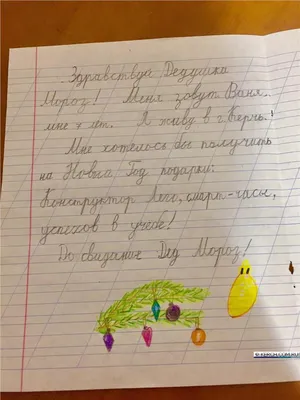 Здравствуй Дедушка
Мороз! Меня зовут Ваня.
мне 7 лет. Я живу в г. Керчь!
Мне хотелось бы получить
на Новый Год подарки:
Конструктор Лего, смарт-часы,
успехов в учебе!
До свидания Дед Мороз!
© KERCH.COM.RU